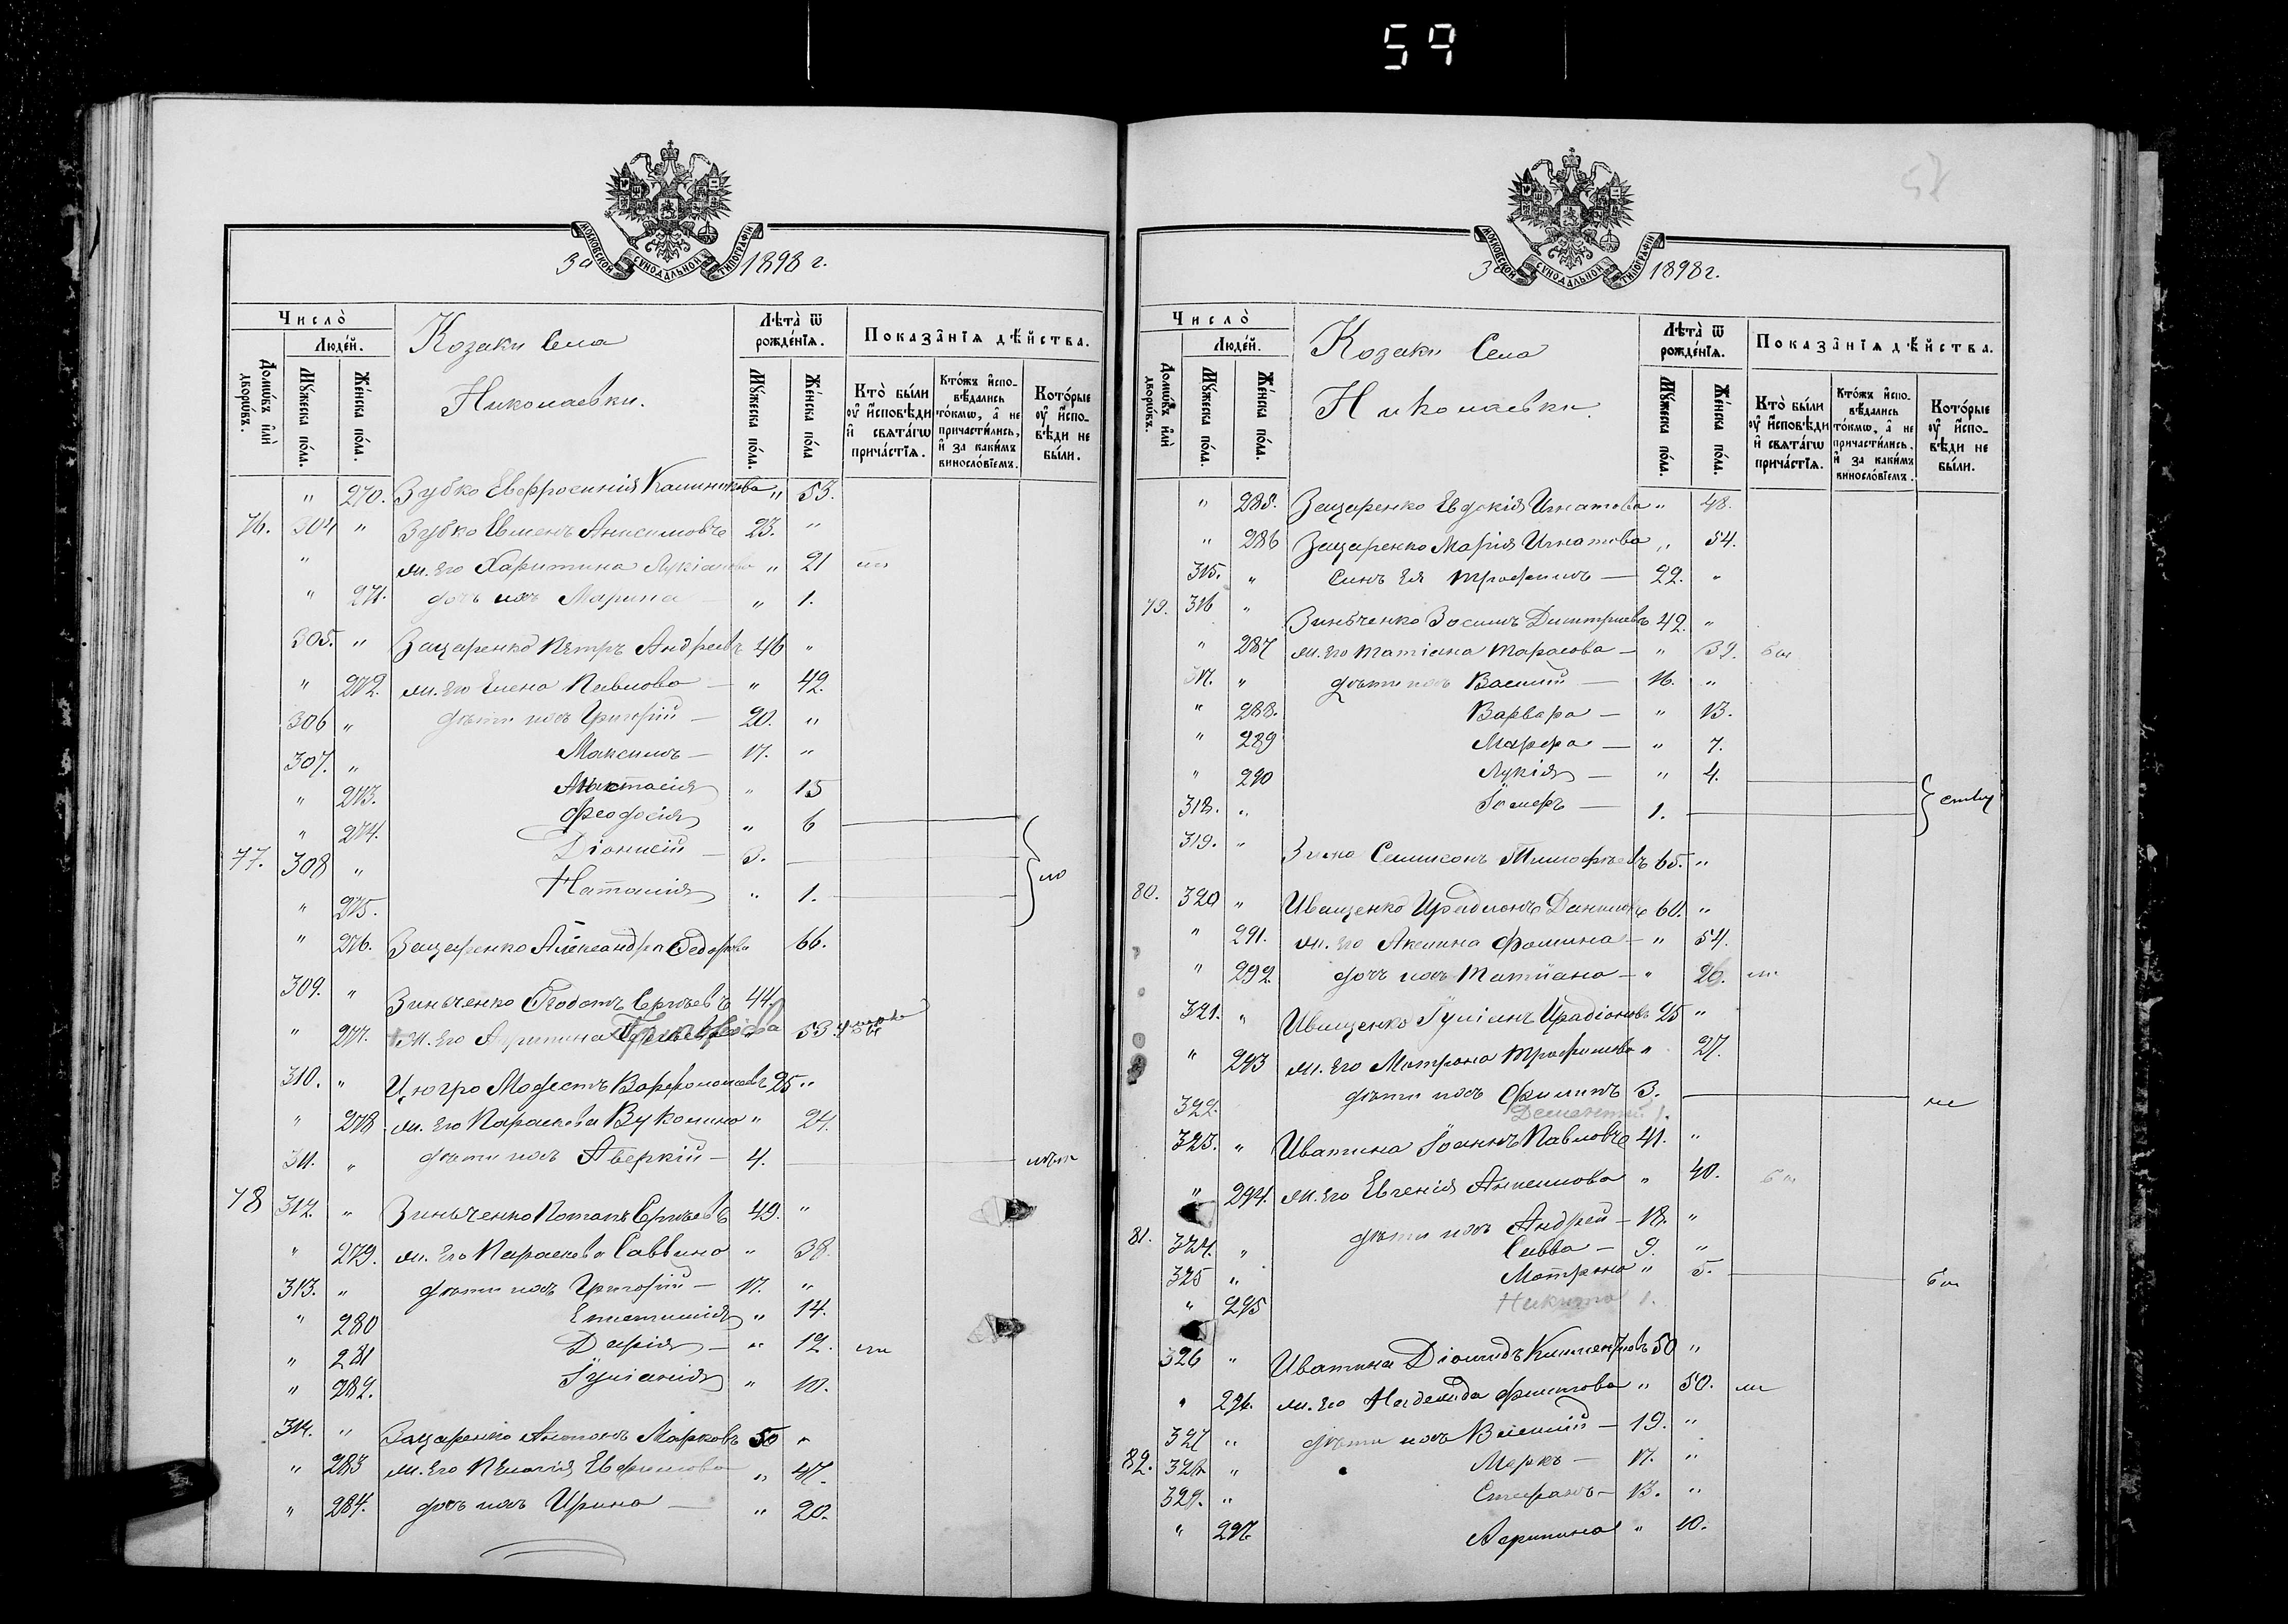 59
МОСКОВСКОЙ СѴНОДАЛЬНОЙ ТИПОГРАФІИ
За 1898 г.
Число̀
Люде́й.
Домѡ́въ и҆лѝ дворѡ́въ.
Мꙋ́жеска по́ла.
Же́нска по́ла.
Козаки Села
Николаевки.
Лѣ́та ѿ рожде́нїя.
Мꙋ́жеска по́ла.
Же́нска по́ла
Показа̑нїя дѣ́йства.
Кто̀ бы́ли ᲂу҆ и҆сповѣ́ди и҆ свѧта́гѡ прича́стїя.
Кто́жъ и҆спо-вѣ́дались то́кмѡ, а҆ не причасти́лись, и҆ за каки́мъ винослові́емъ.
Кото́рые ᲂу҆ и҆спо-вѣ́ди не бы́ли.
" 270. Зубко Евфросинія Калиникова " 53.
76. 304 " Зубко Евменъ Анисимовъ 23. "
" ж. его Харитина Лукіанова " 21
" 271. дочь ихъ Марина — " 1.
305. " Зацаренко Петръ Андреевъ 46 "
" 272. ж. его Елена Павлова — " 42.
306 " дѣти ихъ Григорій — 20. "
307. " Максимъ — 17. "
" 273. Анастасія " 15
" 274. Феодосія " 6
77. 308 " Діонисій — 3.
" 275. Наталія " 1.
" 276. Зацаренко Александра Федорова 66.
309. " Зиньченко Феодотъ Сергѣевъ 44.
" 277. ж. его Агрипина 53
310. " Цюгро Модестъ Варфоломеевъ 25 "
" 278 ж. его Параскева Вуколина " 24.
311. " дѣти ихъ Аверкій — 4.
78 312. " Зиньченко Потапъ Сергѣевъ 49. "
" 279. ж. его Параскева Саввина " 38.
313. " дѣти ихъ Григорій — 17. "
" 280 " 14.
" 281 Дарія — " 12.
" 282. Іуліанія " 10.
314. " Зацаренко Антонъ Марковъ 50 "
" 283 ж. его Пелагія Евфимова " 47.
" 284. дочь ихъ Ирина — " 20.
За 1898 г.
МОСКОВСКОЙ СѴНОДАЛЬНОЙ ТИПОГРАФІИ
Число̀
Люде́й.
Домѡ́въ и҆лѝ дворѡ́въ.
Мꙋ́жеска по́ла.
Же́нска по́ла.
Козаки Села
Николаевки.
Лѣ́та ѿ рожде́нїя.
Мꙋ́жеска по́ла.
Же́нска по́ла.
Показа̑нїя дѣ́йства.
Кто̀ бы́ли ᲂу҆ и҆сповѣ́ди и҆ свѧта́гѡ прича́стїя.
Кто́жъ и҆спо-вѣ́дались то́кмѡ, а҆ не причасти́лись, и҆ за каки́мъ винослові́емъ.
Кото́рые ᲂу҆ и҆спо-вѣ́ди не бы́ли.
" 285. Зацаренко Евдокія Игнатова " 48.
" 286 Зацаренко Марія Игнатова " 54.
315. " Сынъ Ея Трофимъ — 22. "
79. 316 " Зиньченко Зосимъ Димитріевъ 42. "
" 287 ж. его Татіана Тарасова — " 39.
317. " дѣти ихъ Василій — 16. "
" 288. Варвара — " 13.
" 289 Марфа — " 7.
" 290 Лукія — " 4.
318. " Іосифъ — 1.
319. " Симеонъ Тимофѣевъ 65. "
80. 320 " Иващенко Иродіонъ Даниловъ 60. "
" 291. ж. его Акилина Фомина — " 54.
" 292 дочь ихъ Татіана — " 26.
321. " Иващенко Іуліанъ Иродіоновъ 25 "
" 293 ж. его Матрона Трофимова " 27.
322. дѣти ихъ Филипъ 3.
Дементій 1.
323. " Иватина Іоаннъ Павловъ 41. "
" 294. ж. его Евгенія Анисимова " 40.
81. 324. " дѣти ихъ Андрей — 18. "
325 " Савва — 9. "
" 295 Матрона " 5.
Никита 1.
326 " Иватина Діомидъ Климентовъ 50 "
" 296. ж. его Надежда Филипова " 50.
327 " дѣти ихъ Василій — 19. "
82. 328 " Маркъ — 17. "
329. " Стефанъ — 13. "
" 297 Агрипина " 10.